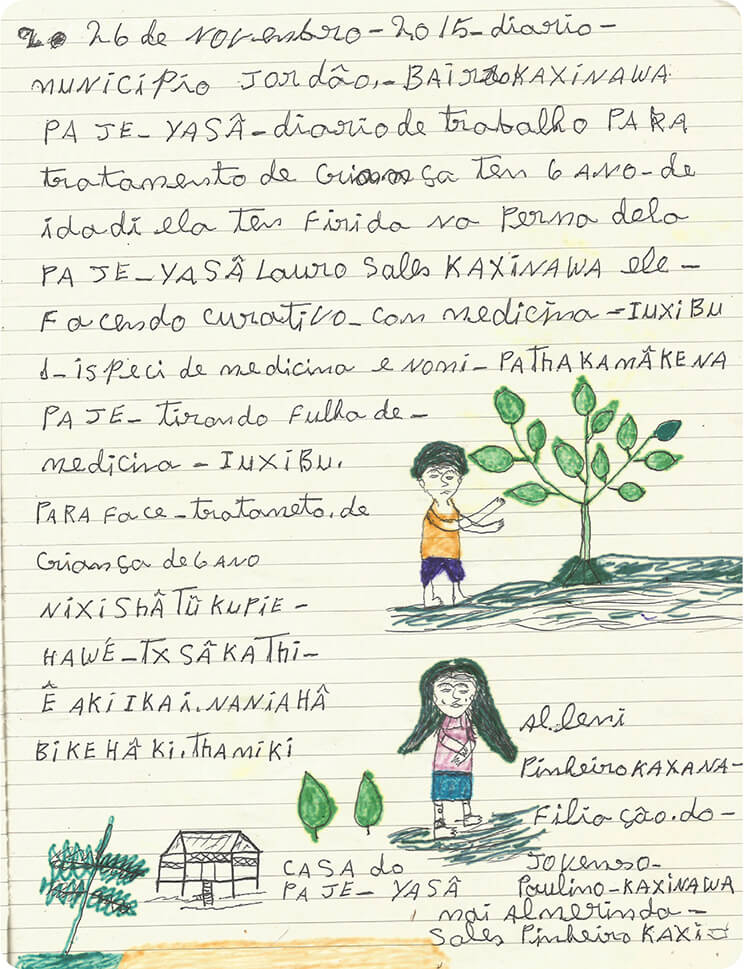 26 de novembro-2015-diario-
municipio JORdão.-BAIRRO KAXINAWA
PAJE-YASÂ-diario de trabalho PARA
tratamento de criança ten 6 ANO-de
idadi ela ten firida na perna dela
PAJE-YASÂ Lauro Sales KAXINAWA ele-
facendo curativo-con medicina-IUXIBU
1-ispeci de medicina e nomi-PATHAKAMÂKENA
PAJE-tirando fulha de-
medicina-IUXIBU.
PARA face-tratameto.de
criança de 6 ANO
NIXI SHÂTÛ KUPIE-
HAWÉ-TXSÂKATHI-
Ê AKI IKAI.NANIAHÂ
BIKEHÂKI.THAMIKI
Al.leni
Pinheiro KAXANA-
filiação.do-
CASA do
PAJE-YASÂ
Jovenso-
Paulino-KAXINAWA
mai Almerinda-
Sales Pinheiro KAXI